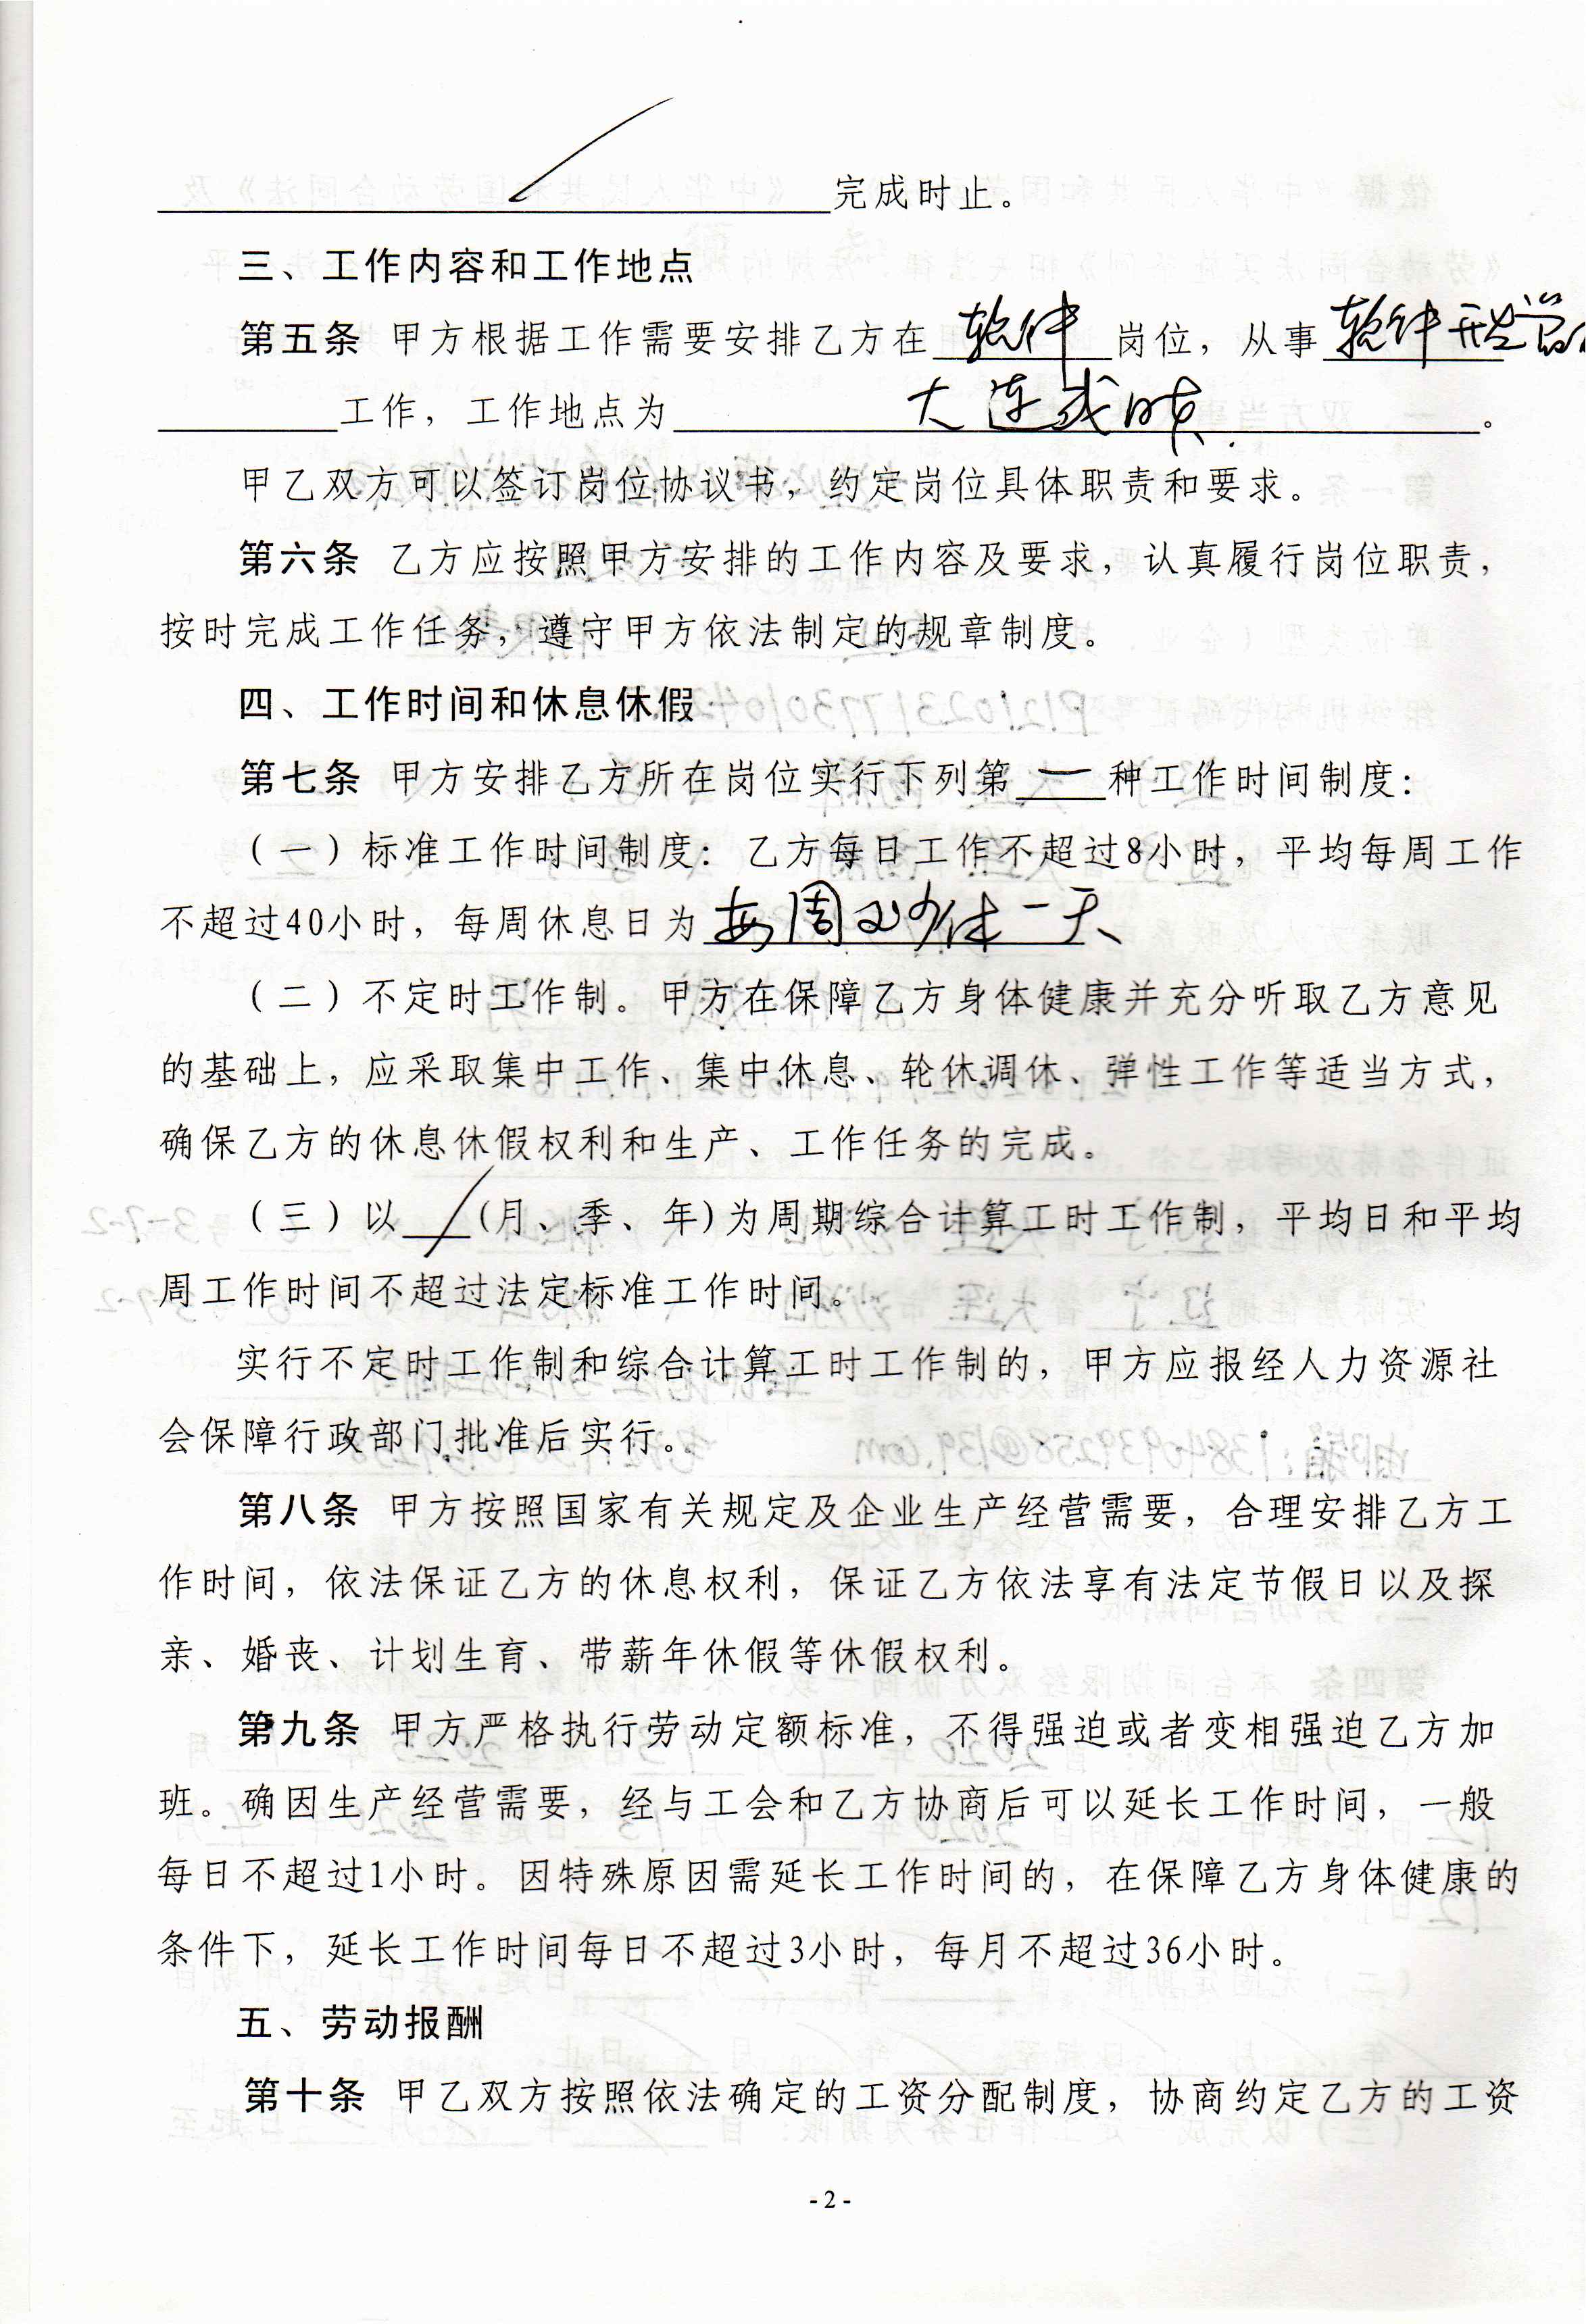 完成时止。
三、工作内容和工作地点
第五条 甲方根据工作需要安排乙方在 软件 岗位，从事 软件开发
工作，工作地点为 大连
甲乙双方可以签订岗位协议书，约定岗位具体职责和要求。
第六条 乙方应按照甲方安排的工作内容及要求，认真履行岗位职责，
按时完成工作任务，遵守甲方依法制定的规章制度。
四、工作时间和休息休假
第七条 甲方安排乙方所在岗位实行下列第 一 种工作时间制度：
（一）标准工作时间制度：乙方每日工作不超过8小时，平均每周工作
不超过40小时，每周休息日为 每周至少休一天
（二）不定时工作制。甲方在保障乙方身体健康并充分听取乙方意见
的基础上，应采取集中工作、集中休息、轮休调休、弹性工作等适当方式，
确保乙方的休息休假权利和生产、工作任务的完成。
（三）以 / (月、季、年)为周期综合计算工时工作制，平均日和平均
周工作时间不超过法定标准工作时间。
实行不定时工作制和综合计算工时工作制的，甲方应报经人力资源社
会保障行政部门批准后实行。
第八条 甲方按照国家有关规定及企业生产经营需要，合理安排乙方工
作时间，依法保证乙方的休息权利，保证乙方依法享有法定节假日以及探
亲、婚丧、计划生育、带薪年休假等休假权利。
第九条 甲方严格执行劳动定额标准，不得强迫或者变相强迫乙方加
班。确因生产经营需要，经与工会和乙方协商后可以延长工作时间，一般
每日不超过1小时。因特殊原因需延长工作时间的，在保障乙方身体健康的
条件下，延长工作时间每日不超过3小时，每月不超过36小时。
五、劳动报酬
第十条 甲乙双方按照依法确定的工资分配制度，协商约定乙方的工资
- 2 -